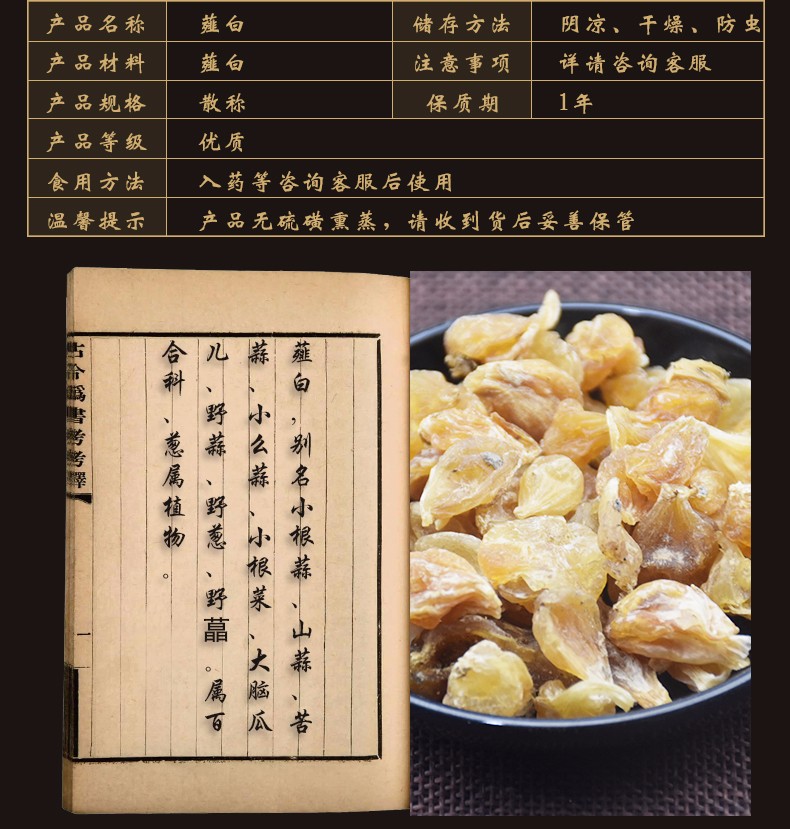 产品名称 薤白 储存方法 阴凉、干燥、防虫
产品材料 薤白 注意事项 详请咨询客服
产品规格 散称 保质期 1年
产品等级 优质
食用方法 入药等咨询客服后使用
温馨提示 产品无硫磺熏蒸，请收到货后妥善保管
薤白，别名小根蒜、山蒜、苦
蒜、小么蒜、小根菜、大脑瓜
儿、野蒜、野葱、野藠。属百
合科、葱属植物。
古今爲書考考釋
一